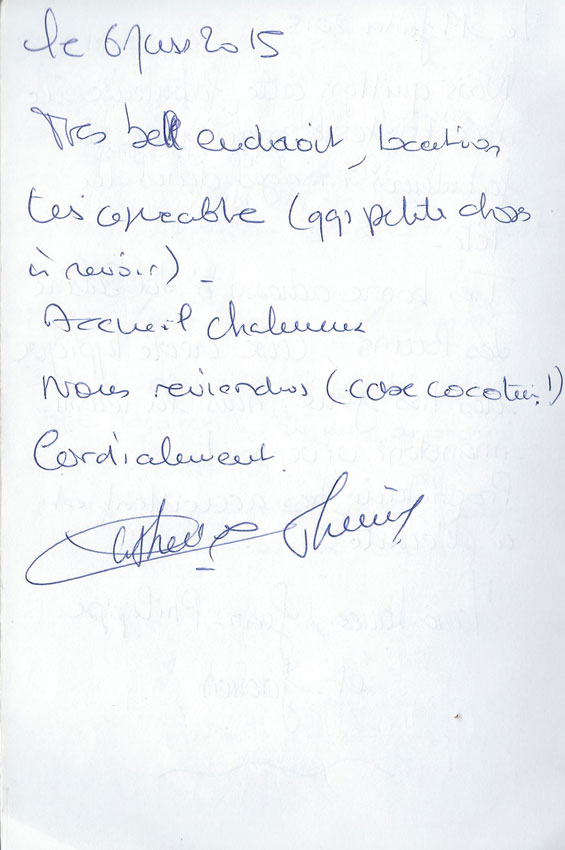 le 6 Mars 2015
Très bel endroit, location
très agréable (qqs petites choses
à revoir) -
Accueil chaleureux
Nous reviendrons (case cocotier !)
Cordialement.
Catherine